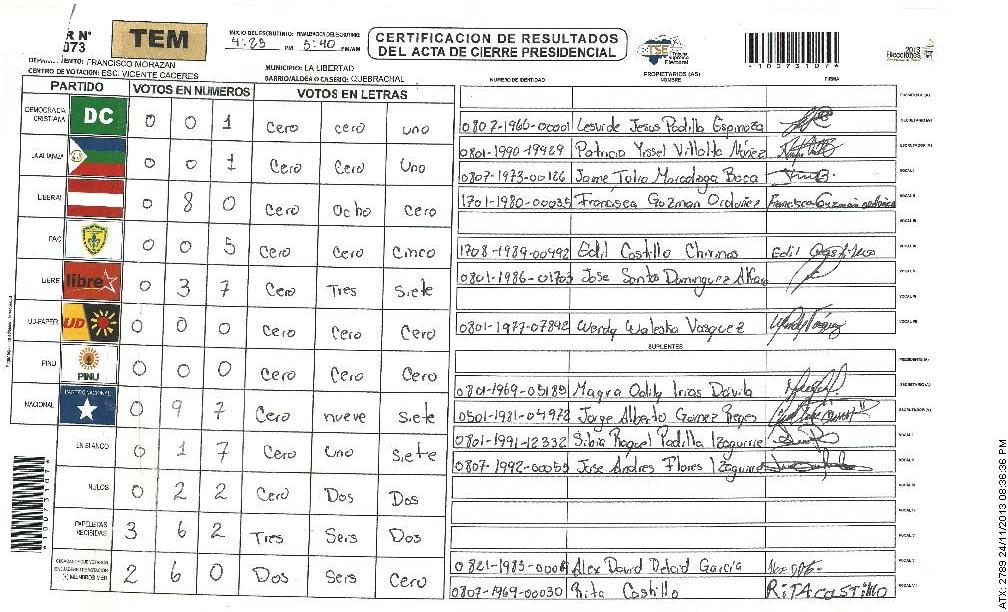 R N°
073
TEM
INICIO DEL ESCRUTINIO: FINALIZACION DEL ESCRUTINIO:
4:29 PM 5:40 PM/AM
CERTIFICACION DE RESULTADOS
DEL ACTA DE CIERRE PRESIDENCIAL
TSE Tribunal Supremo Electoral
2013
Elecciones
FRANCISCO MORAZAN
MUNICIPIO: LA LIBERTAD
CENTRO DE VOTACION: ESC. VICENTE CACERES
BARRIO/ALDEA O CASERIO: QUEBRACHAL
NUMERO DE IDENTIDAD
PROPIETARIOS (AS)
NOMBRE
FIRMA
PARTIDO VOTOS EN NUMEROS VOTOS EN LETRAS
DEMOCRACIA CRISTIANA DC 0 0 1 Cero cero uno
LA ALIANZA 0 0 1 Cero Cero Uno
LIBERAL 0 8 0 Cero Ocho cero
PAC 0 0 5 Cero Cero Cinco
LIBRE libre 0 3 7 Cero Tres Siete
UD-FAPER UD 0 0 0 Cero Cero Cero
PINU PINU 0 0 0 Cero Cero Cero
NACIONAL PARTIDO NACIONAL 0 9 7 Cero nueve Siete
EN BLANCO 0 1 7 Cero uno siete
NULOS 0 2 2 Cero Dos Dos
PAPELETAS RECIBIDAS 3 6 2 Tres Seis Dos
(+) MIEMBROS MER 2 6 0 Dos Seis Cero
PRESIDENTE (A)
0807-1966-00001 Jesus Padilla Espinoza SECRETARIO (A)
0801-1990-19429 Patricia Yissel Villalta Núñez ESCRUTADOR (A)
0807-1973-00126 Jaime Tulio Boca VOCAL I
1701-1980-00035 Francisca Guzman Ordoñez Francisca Guzmán VOCAL II
VOCAL III
1708-1989-00492 Edil Castillo Chirinos Edil Castillo VOCAL IV
0801-1986-01703 Jose Santo Dominguez Alfaro VOCAL V
VOCAL VI
0801-1977-07892 Wendy Waleska Vasquez VOCAL VII
SUPLENTES
PRESIDENTE (A)
0801-1969-05189 Magra Odily Irias Davila SECRETARIO (A)
0501-1981-04972 Jorge Alberto Gomez Reyes ESCRUTADOR (A)
0801-1991-12332 Silvia Raquel Padilla Izaguirre VOCAL I
0807-1992-00055 Jose Andres Flores Izaguirre VOCAL II
VOCAL III
VOCAL IV
VOCAL V
Alex David Garcia VOCAL VI
0807-1969-00030 Rita Castillo RITA CASTILLO VOCAL VII
ATX: 2789 24/11/2013 08:36:36 PM